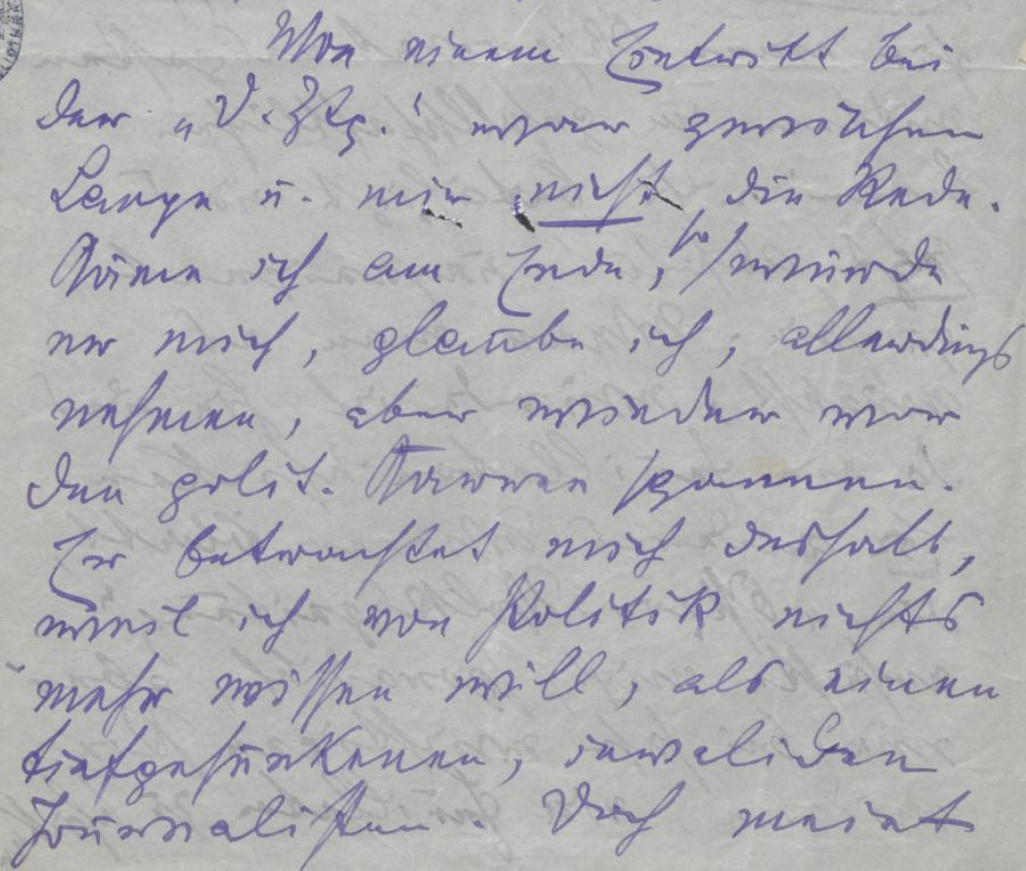 Von einem Eintritt bei
der „V. Ztg.“ war zwischen
Lange u. mir nicht die Rede.
Käme ich am Ende, so würde
er mich, glaube ich, allerdings
nehmen, aber wieder vor
den polit. Karren spannen.
Er betrachtet mich deshalb,
weil ich von Politik nichts
mehr wissen will, als einen
tiefgesunkenen, invaliden
Journalisten. Doch meint